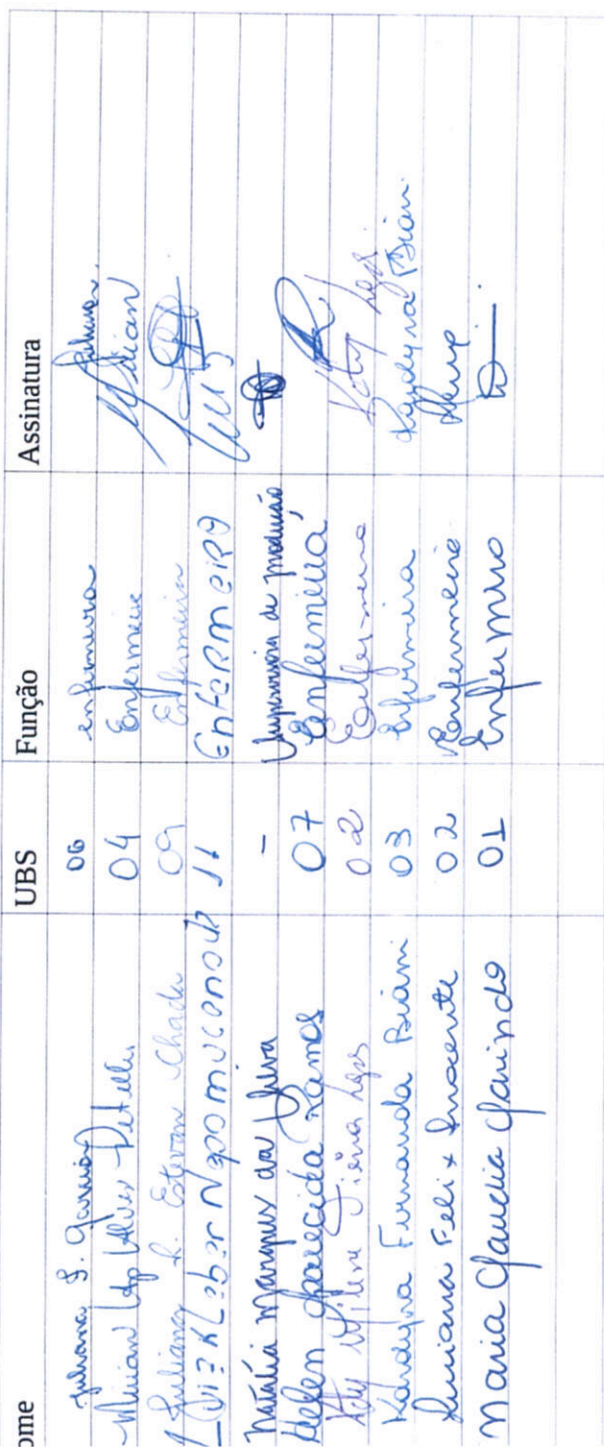 ome UBS Função Assinatura
Juliana S. 06 enfermeira Juliana
Mirian Ap Alves 04 Enfermeira Mirian
Juliana R. Estevan 09 Enfermeira
Luiz Kleber Nepomuceno 11 Enfermeiro Luiz
Natália Marques da Silva - Supervisora de produção
Helen Aparecida Ramos 07 Enfermeira
Katy Milene 02 Enfermeira Katy
Karolyna Fernanda Biani 03 Enfermeira Karolyna Biani
Luciana Felix Inocente 02 Enfermeira
Maria Claudia 01 Enfermeiro